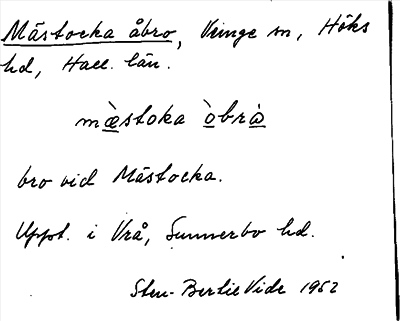 Mästocka åbro, Veinge sn, Höks
hd, Hall. län.
mæ̀stoka òbrå̀
bro vid Mästocka.
Uppt. i Vrå, Sunnerbo hd.
Sten-Bertil Vide 1962